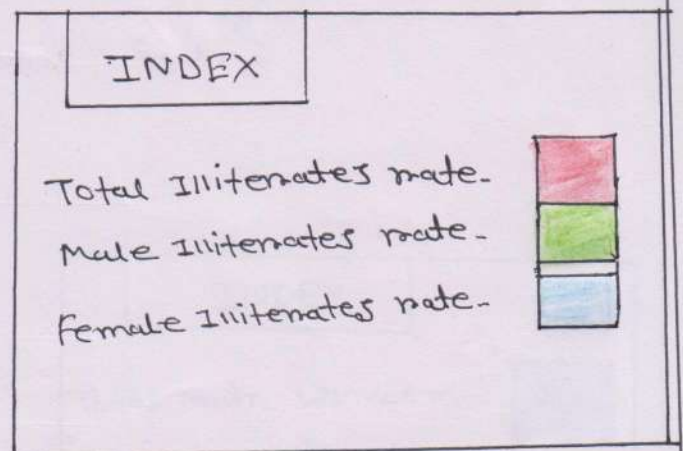 INDEX
Total Illiterates rate-
Male Illiterates rate-
Female Illiterates rate-